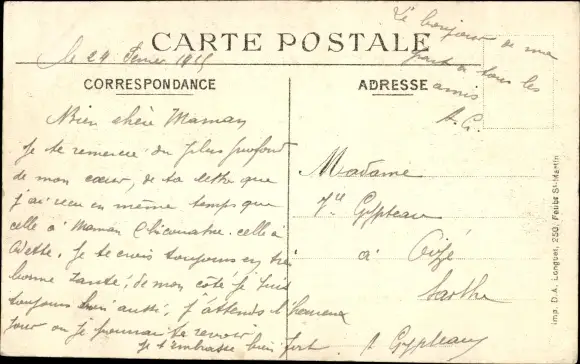 Le bonjour de ma
part a tous les
amis
A. G.
CARTE POSTALE
le 24 Fevrier 1915
CORRESPONDANCE
ADRESSE
Bien chère Maman
Je te remercie du plus profond
de mon cœur, de ta lettre que
j'ai recu en même temps que
celle à Maman celle à
Odette. Je te crois toujours en
bonne santé; de mon côté je suis
toujours bien aussi, j'attends l'heureux
jour ou je pourrai te revoir
je t'embrasse bien fort
A Gypteau
Madame
Gypteau
à Oizé
Sarthe
Imp. D.A. Longuet, 250, Faubg St-Martin